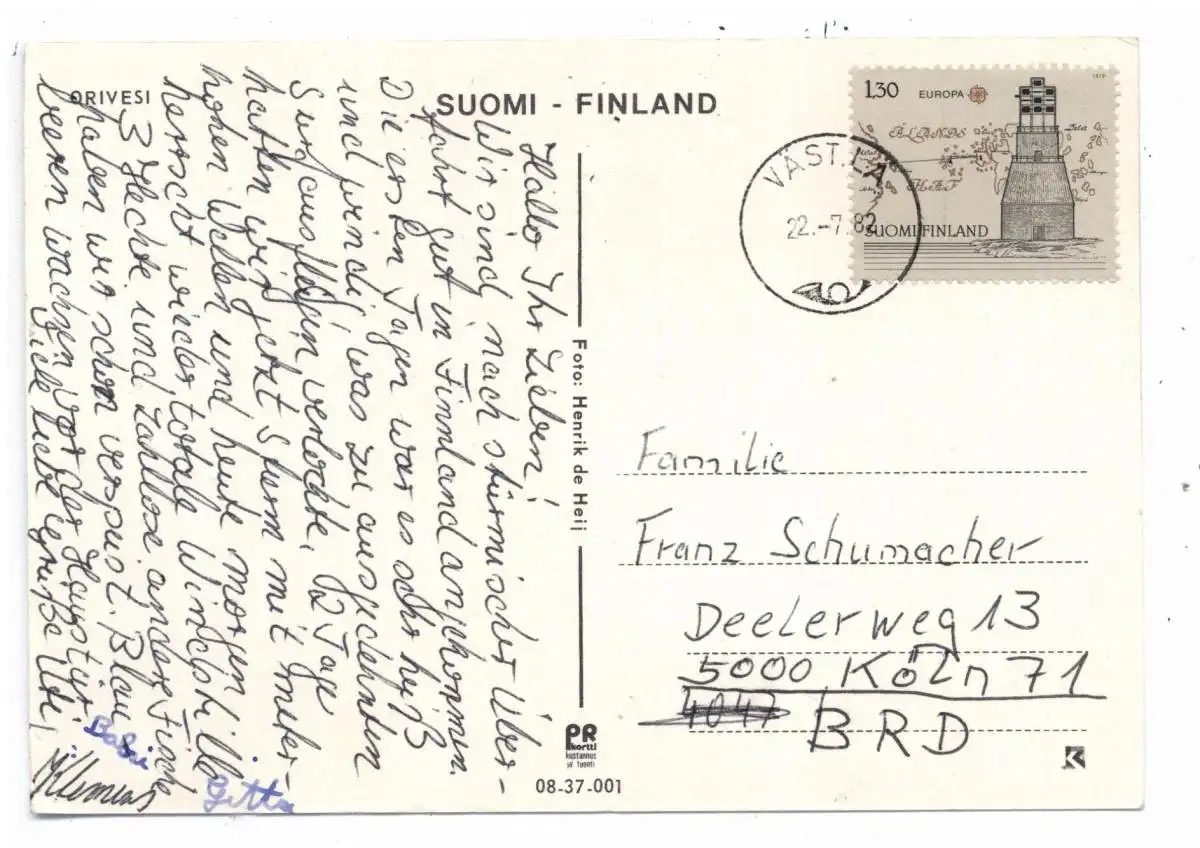 ORIVESI
SUOMI - FINLAND
Hallo Ihr Lieben!
Wir sind nach stürmischer Über-
fahrt gut in Finnland angekommen.
Die ersten Tage war es sehr heiß
und windig was zu ausgedehnten
Surfausflügen verlockte. 1/2 Tage
hatten wir jetzt Sturm mit meter-
hohen Wellen und heute morgen
herrscht wieder totale Windstille
3 Hechte und zahllose andere Fische
haben wir schon verspeist. Blau
beeren wachsen vor der Haustür.
Viele liebe Grüße Ute,
Babsi
Gitta
Foto: Henrik de Heij
PR
kortti
kustannus
ja tuonti
08-37-001
1,30
EUROPA
1979
ÅLANDS
HAF
SUOMI FINLAND
22.-7.82
Familie
Franz Schumacher
Deelerweg 13
5000 Köln 71
4047
BRD
K